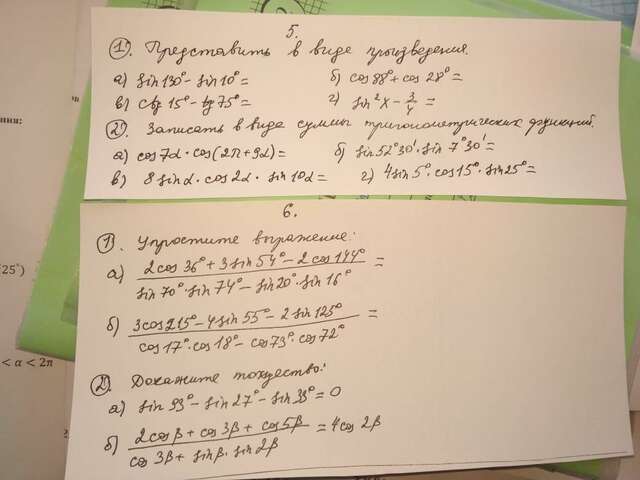 5.
1). Представить в виде произведения.
а) sin130° - sin10° =
б) cos88° + cos28° =
в) ctg15° - tg75° =
г) sin²x - 3/4 =
2). Записать в виде суммы тригонометрических функций.
а) cos7α · cos(2π + 9α) =
б) sin52°30' · sin7°30' =
в) 8sinα · cos2α · sin10α =
г) 4sin5° · cos15° · sin25° =
6.
1). Упростите выражение:
а) (2cos36° + 3sin54° - 2cos144°) / (sin70° · sin74° - sin20° · sin16°) =
б) (3cos215° - 4sin55° - 2sin125°) / (cos17° · cos18° - cos73° · cos72°) =
2). Докажите тождество:
а) sin93° - sin27° - sin33° = 0
б) (2cosβ + cos3β + cos5β) / (cos3β + sinβ · sin2β) = 4cos2β
25°)
< α < 2π